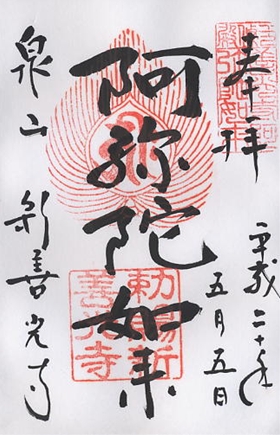 奉拝
平成二十年
五月五日
阿弥陀如来
勅賜新
善光寺
泉山 新善光寺